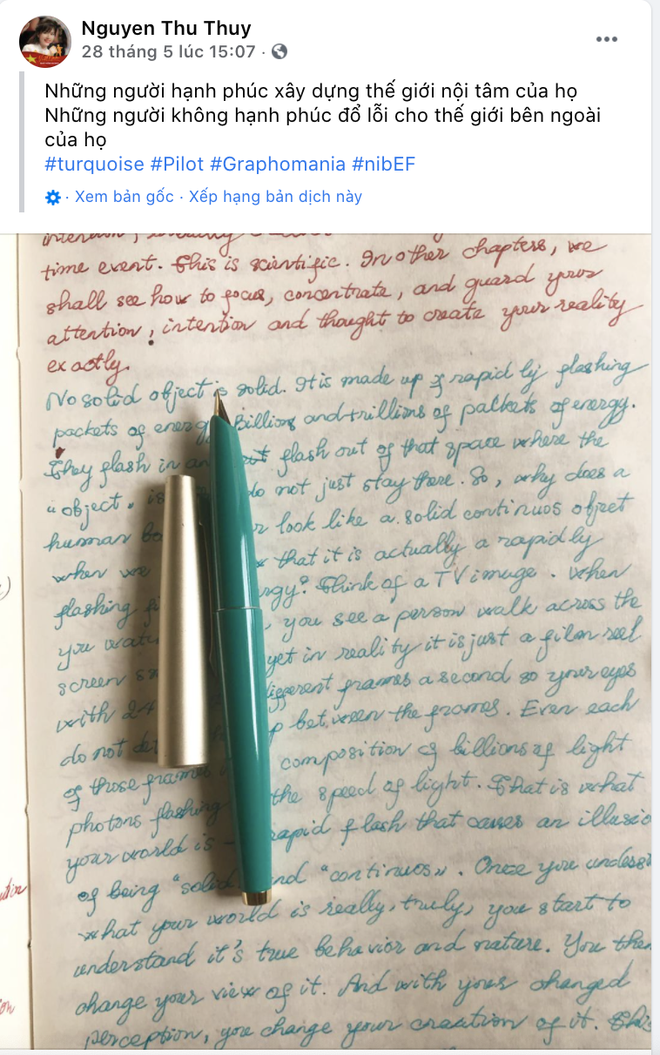 Nguyen Thu Thuy
28 tháng 5 lúc 15:07 ·
Những người hạnh phúc xây dựng thế giới nội tâm của họ
Những người không hạnh phúc đổ lỗi cho thế giới bên ngoài
của họ
#turquoise #Pilot #Graphomania #nibEF
· Xem bản gốc · Xếp hạng bản dịch này
time event. This is scientific. In other chapters, we
shall see how to focus, concentrate, and guard your
attention, intention and thought to create your reality
exactly.
No solid object is solid. It is made up of rapidly flashing
packets of energy. Billions and trillions of packets of energy.
They flash in and out flash out of that space where the
"object" is do not just stay there. So, why does a
human look like a solid continuos objet
when we that it is actually a rapidly
flashing Think of a TV image. When
you you see a person walk across the
screen yet in reality it is just a film reel
with 24 different frames a second so your eyes
do not between the frames. Even each
of those frames composition of billions of light
photons flashing the speed of light. That is what
your world is - rapid flash that causes an
of being "solid" and "continuos". Once you
what your world is really, truly, you start to
understand it's true behavior and nature. You then
change your view of it. And with your changed
perception, you change your creation of it.